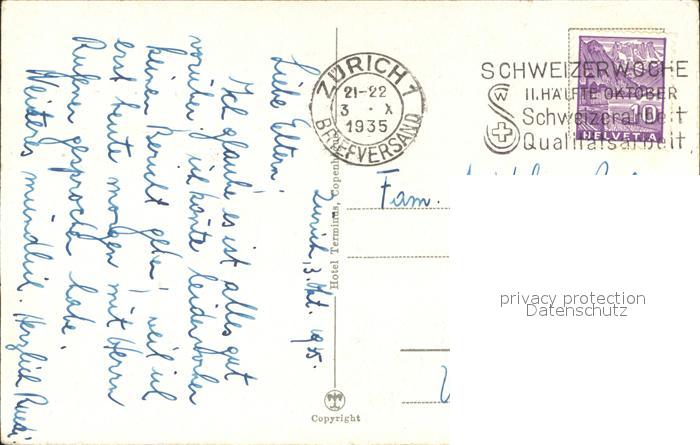 Zürich, 3. Okt. 1935.
Liebe Eltern!
Ich glaube es ist alles gut
vorüber. ich konnte leider vorher
keinen Bericht geben, weil ich
erst heute morgen mit Herrn
gesprochen habe.
Weiteres mündlich. Herzlich Ruedi
Hotel Terminus, Copenh
Copyright
ZÜRICH 1
21-22
3 · X
1935
BRIEFVERSAND
SCHWEIZERWOCHE
SW II. HÄLFTE OKTOBER
Schweizerarbeit
Qualitätsarbeit
10
HELVETIA
Fam.
privacy protection
Datenschutz